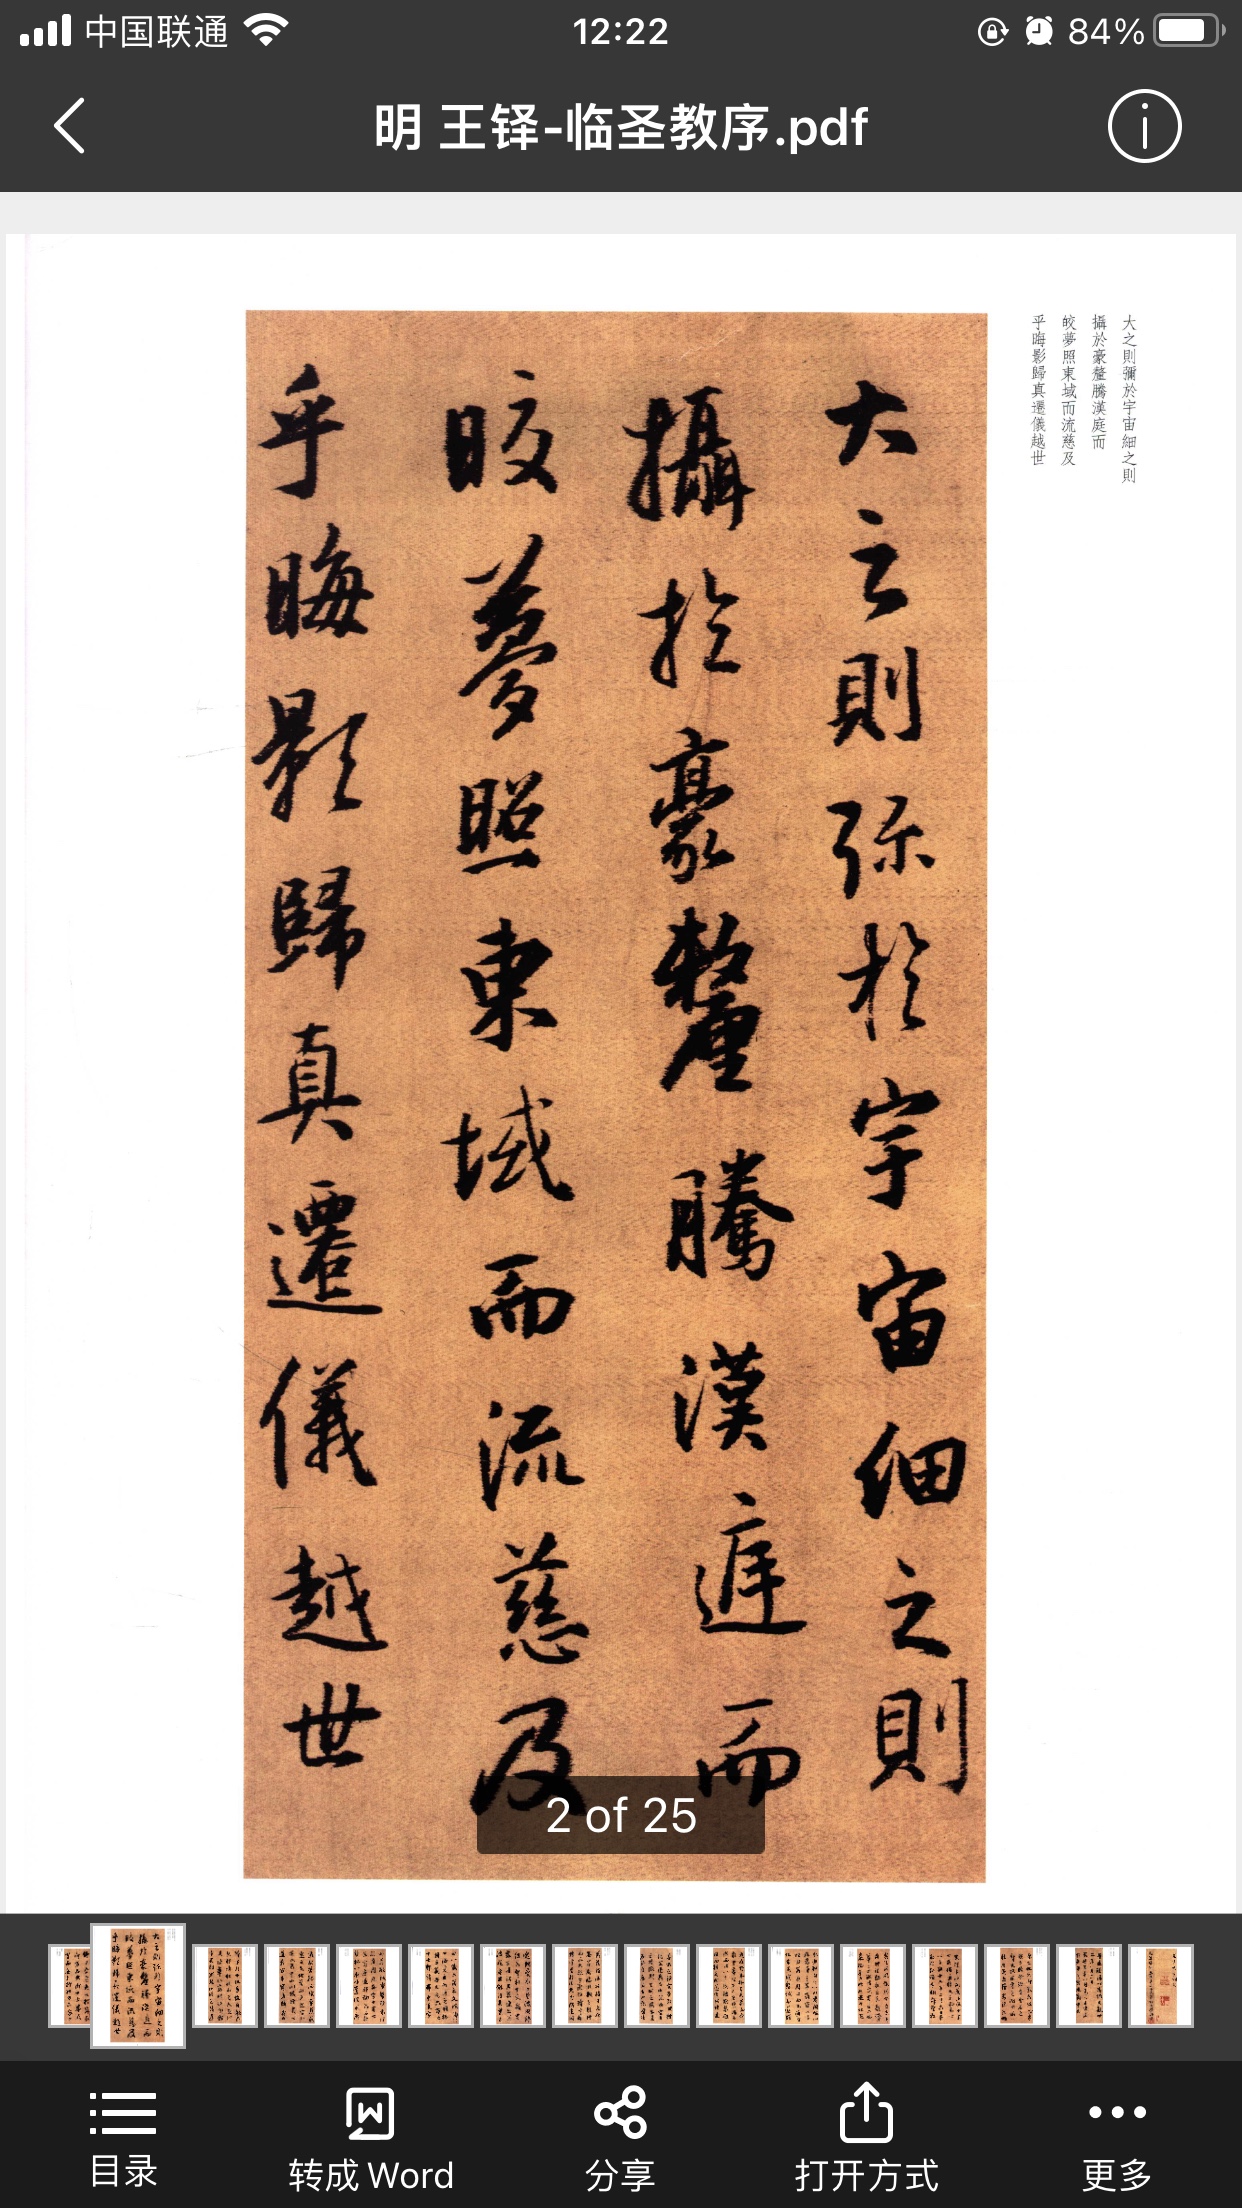 中国联通
12:22
84%
明 王铎-临圣教序.pdf
大之則彌於宇宙細之則
攝於豪釐騰漢庭而
皎夢照東域而流慈及
乎晦影歸真遷儀越世
大之則弥於宇宙細之則
攝於豪釐騰漢庭而
皎夢照東域而流慈及
乎晦影歸真遷儀越世
2 of 25
目录
转成Word
分享
打开方式
更多